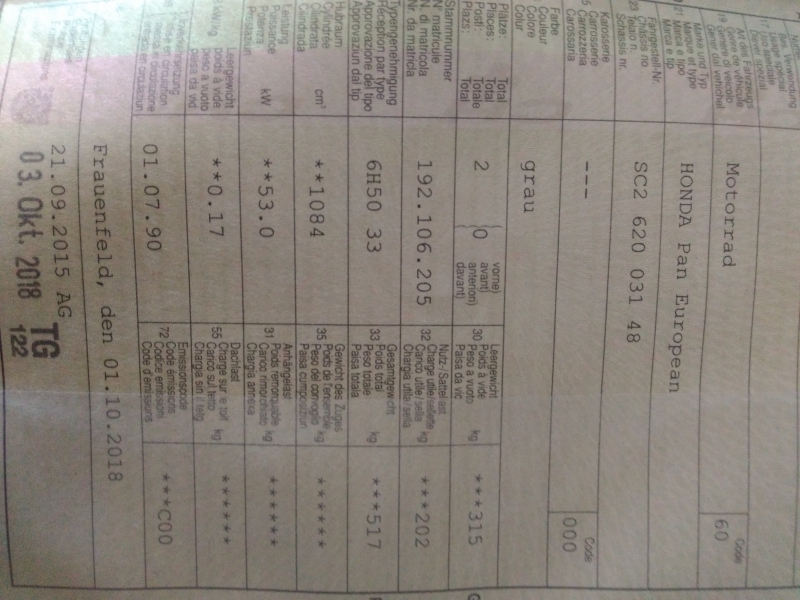 Art des Fahrzeugs
Genre de véhicule
Genere di veicolo
Gener dal vehichel
Motorrad
Code
60
Marke und Typ
Marque et type
Marca e tipo
Marca e tip
HONDA Pan European
Fahrgestell-Nr.
Châssis no
Telaio n.
Schassis nr.
SC2 620 031 48
Karosserie
Carrosserie
Carrozzeria
Carossaria
---
Code
000
Farbe
Couleur
Colore
Colur
grau
Plätze: Total
Places: Total
Posti: Totale
Plazs: Total
2
0
vorne)
avant)
anteriori)
davant)
30
Leergewicht
Poids à vide
Peso a vuoto
Paisa da vid
kg
***315
Stammnummer
N° matricule
N. di matricola
Nr. da matricla
192.106.205
32
Nutz-/Sattellast
Charge utile/sellette
Carico utile/sella
Chargia utila/sella
kg
***202
Typengenehmigung
Réception par type
Approvazione del tipo
Approvaziun dal tip
6H50 33
33
Gesamtgewicht
Poids total
Peso totale
Paisa totala
kg
***517
Hubraum
Cylindrée
Cilindrata
Cilindrada
cm³
**1084
35
Gewicht des Zuges
Poids de l'ensemble
Peso del convoglio
Paisa cumposiziun
kg
******
Leistung
Puissance
Potenza
Prestaziun
kW
**53.0
31
Anhängelast
Poids remorquable
Carico rimorchiato
Chargia annexa
kg
******
Leergewicht
poids à vide
peso a vuoto
paisa da vid
**0.17
55
Dachlast
Charge sur le toit
Carico sul tetto
Chargia sin il tetg
kg
******
01.07.90
72
Emissionscode
Code émissions
Codice emissioni
Code d'emissiuns
***C00
Frauenfeld, den 01.10.2018
21.09.2015 AG
03. Okt. 2018 TG
122